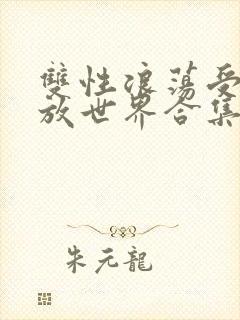 雙性浪蕩受
放世界合集
朱元龍